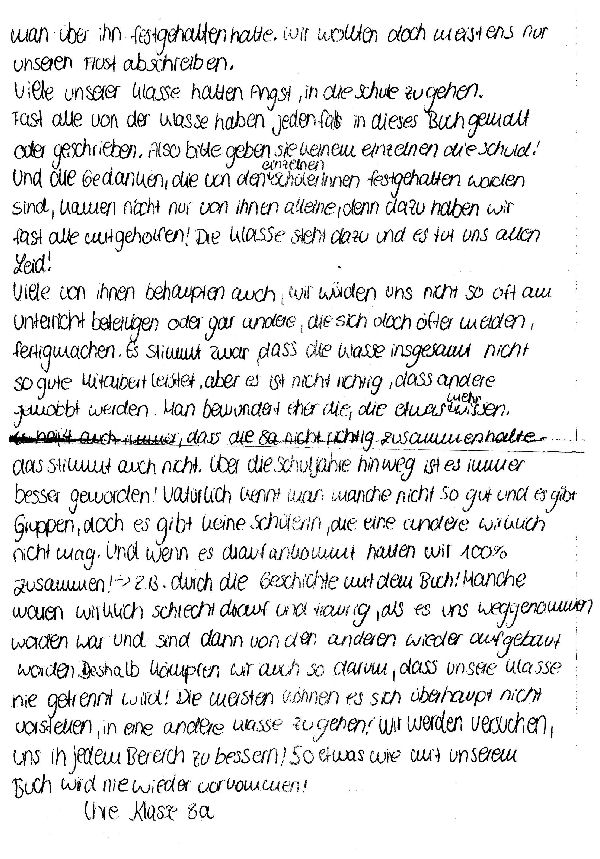 man über ihn festgehalten hatte. Wir wollten doch meistens nur
unseren Frust abschreiben.
Viele unserer Klasse hatten Angst, in die Schule zu gehen.
Fast alle von der Klasse haben jedenfalls in dieses Buch gemalt
oder geschrieben. Also bitte geben sie keinem einzelnen die Schuld!
Und die Gedanken, die von den einzelnen Schülerinnen festgehalten worden
sind, kamen nicht nur von ihnen alleine, denn dazu haben wir
fast alle mitgeholfen! Die Klasse steht dazu und es tut uns allen
Leid!
Viele von ihnen behaupten auch, wir würden uns nicht so oft am
Unterricht beteiligen oder gar andere, die sich doch öfter melden,
fertigmachen. Es stimmt zwar, dass die Klasse insgesamt nicht
so gute Mitarbeit leistet, aber es ist nicht richtig, dass andere
gemobbt werden. Man bewundert eher die, die etwas mehr wissen.
Es heißt auch immer, dass die 8a nicht richtig zusammenhalte
das stimmt auch nicht. Über die Schuljahre hinweg ist es immer
besser geworden! Natürlich kennt man manche nicht so gut und es gibt
Gruppen, doch es gibt keine Schülerin, die eine andere wirklich
nicht mag. Und wenn es drauf ankommt halten wir 100%
zusammen! -> z.B. durch die Geschichte mit dem Buch! Manche
waren wirklich schlecht drauf und traurig, als es uns weggenommen
worden war und sind dann von den anderen wieder aufgebaut
worden. Deshalb kämpfen wir auch so darum, dass unsere Klasse
nie getrennt wird! Die meisten können es sich überhaupt nicht
vorstellen, in eine andere Klasse zu gehen! Wir werden versuchen,
uns in jedem Bereich zu bessern! So etwas wie mit unserem
Buch wird nie wieder vorkommen!
Ihre Klasse 8a